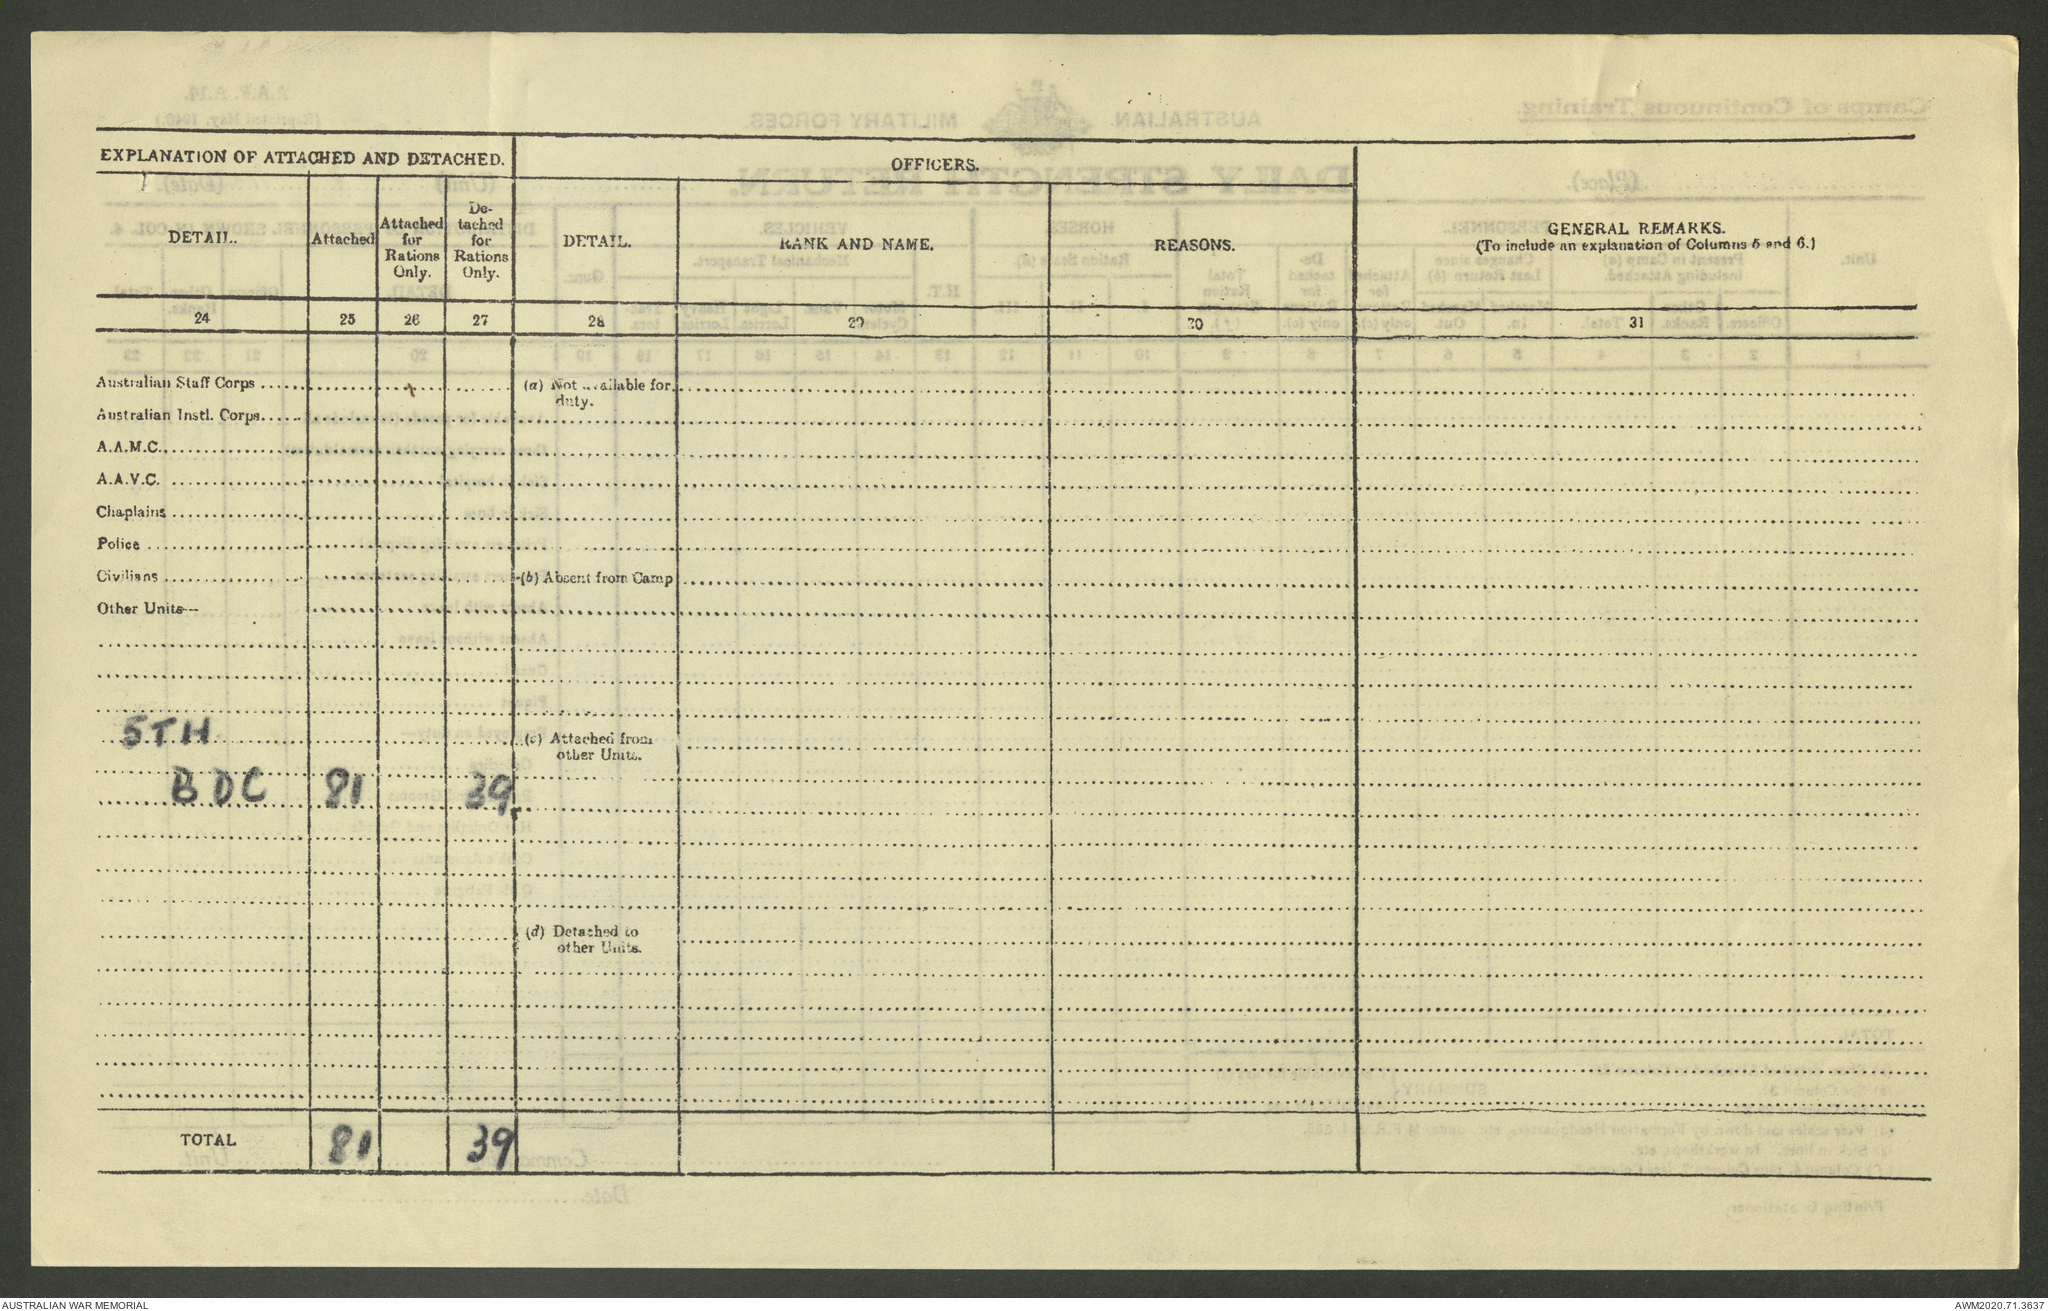 EXPLANATION OF ATTACHED AND DETACHED.
OFFICERS.
DETAIL.
Attached
Attached
for
Rations
Only.
De-
tached
for
Rations
Only.
DETAIL.
RANK AND NAME.
REASONS.
GENERAL REMARKS.
(To include an explanation of Columns 5 and 6.)
24 25 26 27 28 29 30 31
Australian Staff Corps
(a) Not available for
duty.
Australian Instl. Corps
A.A.M.C.
A.A.V.C.
Chaplains
Police
Civilians
(b) Absent from Camp
Other Units—
5TH
(c) Attached from
other Units.
BDC 81 39
(d) Detached to
other Units.
TOTAL 81 39
AUSTRALIAN WAR MEMORIAL
AWM2020.71.3637